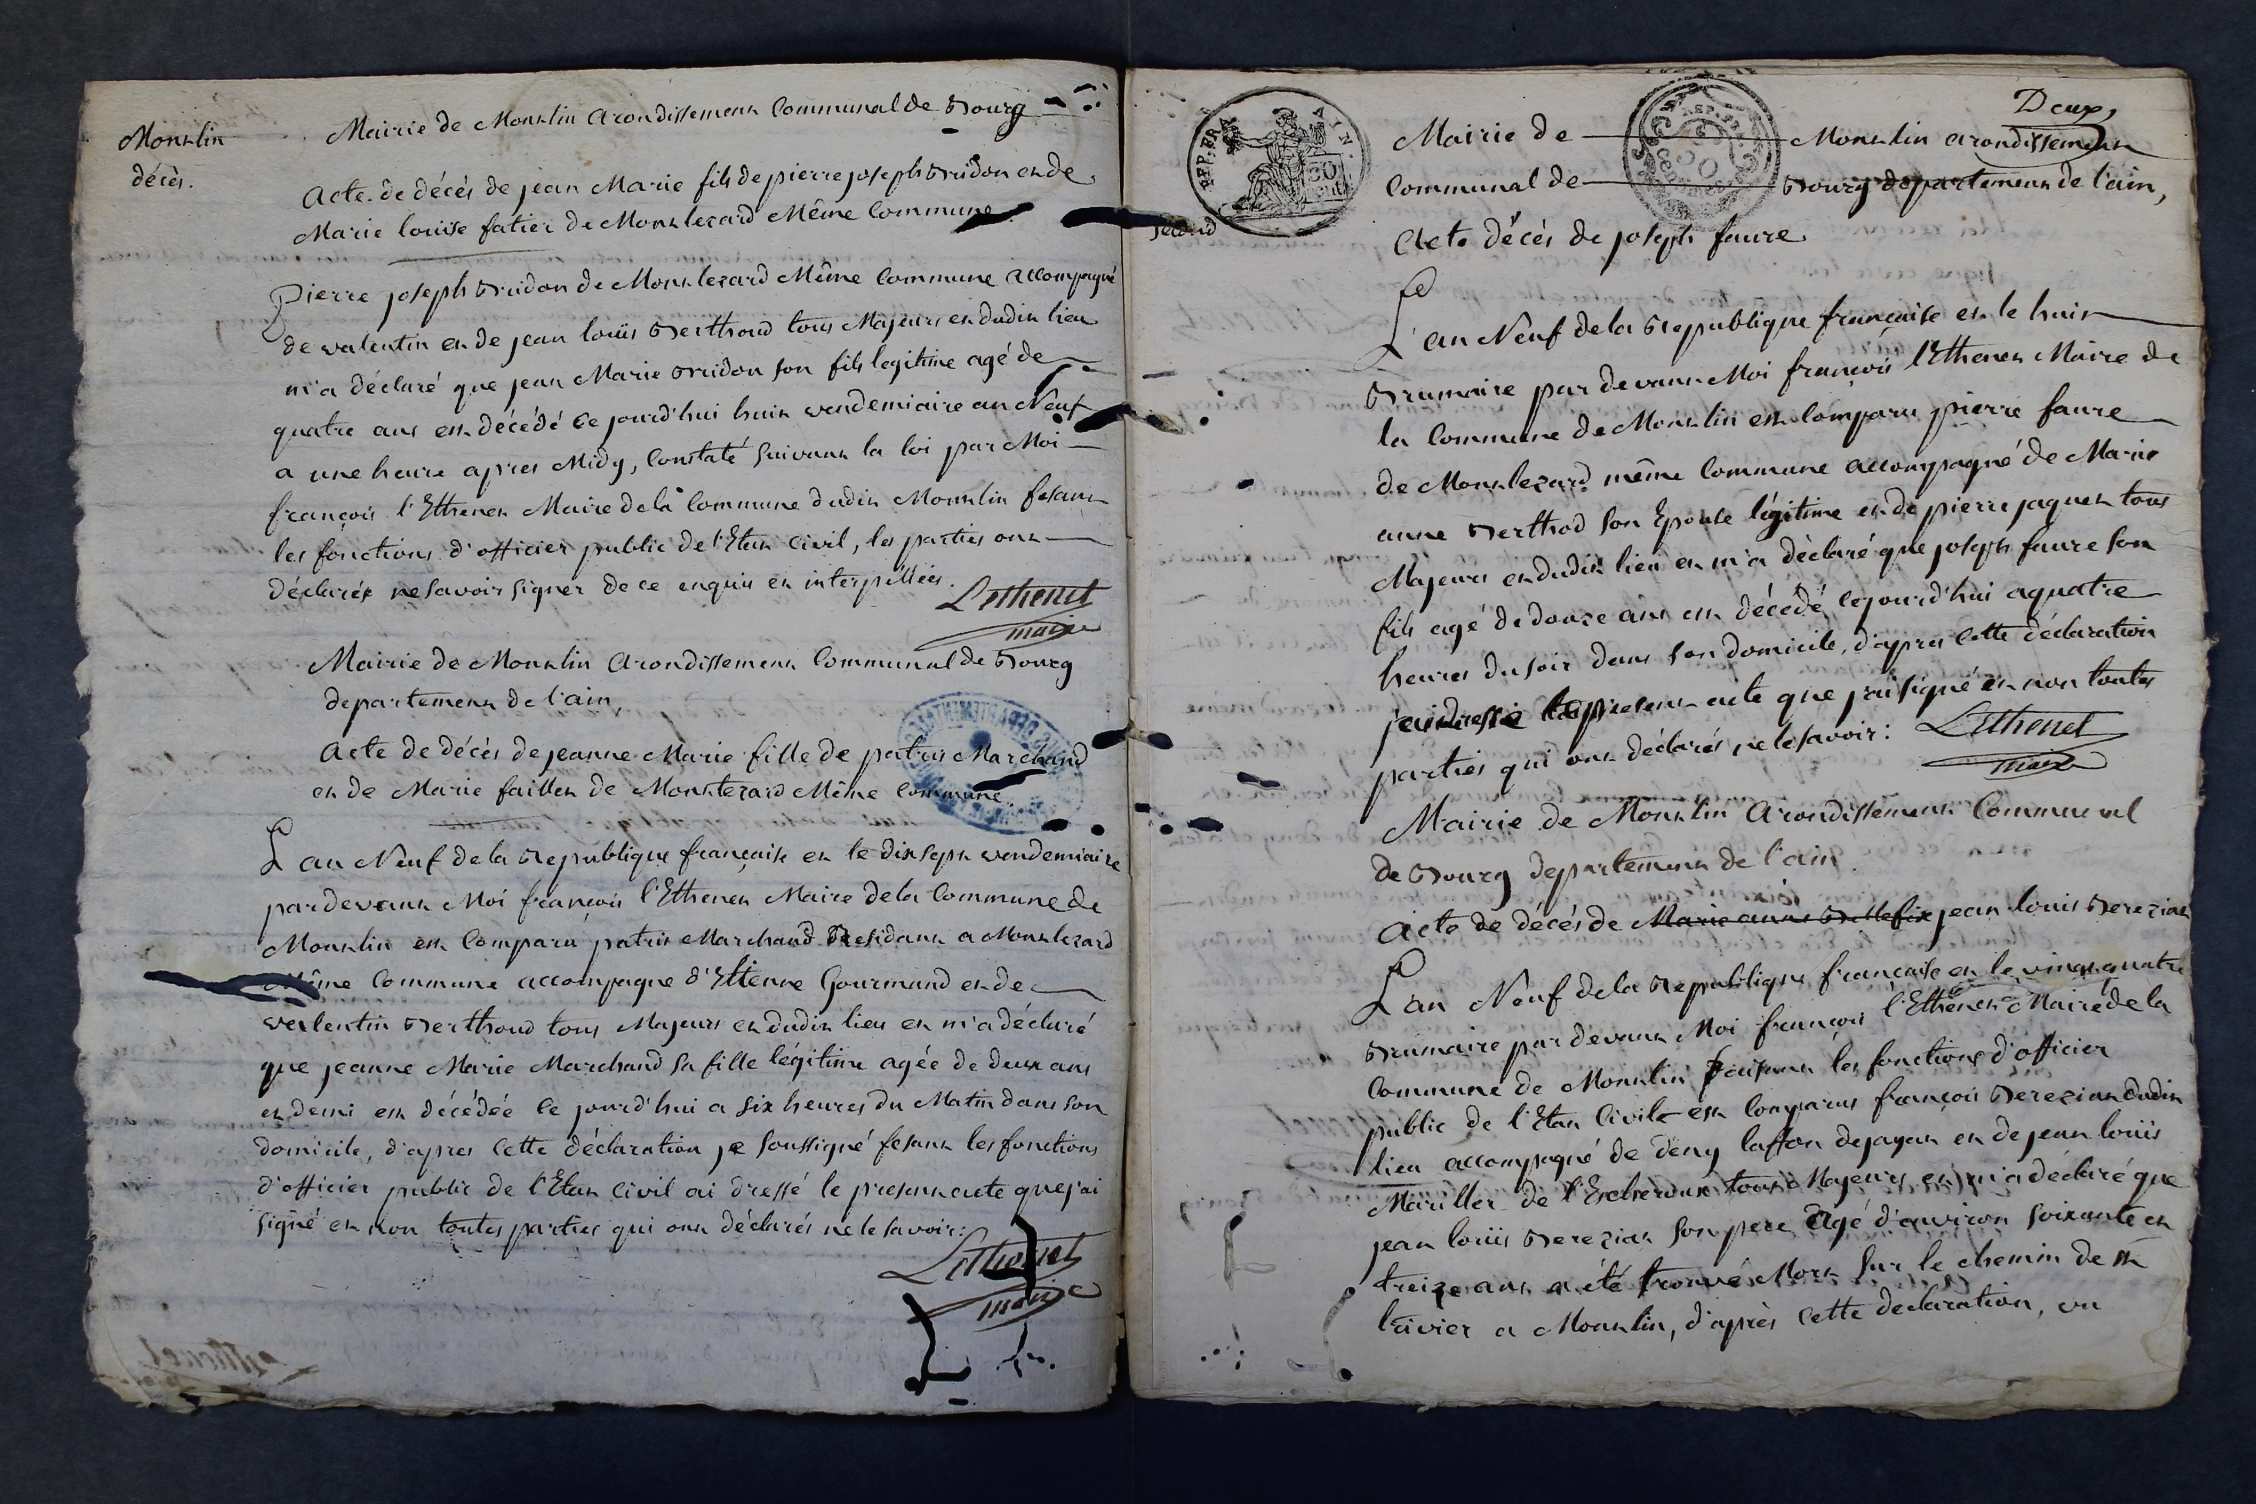 Monnlin
décès.
Mairie de Montlin arondissement Communal de Bourg
Acte de décès de jean Marie fils de pierre joseph Bridon et de
Marie louise fatier de Montlezard Même Commune
Pierre joseph Bridon de Montlezard Même Commune accompagné
de valentin et de jean louis Berthoud tous Majeurs et dudit lieu
m'a déclaré que jean Marie Bridon son fils legitime agé de
quatre ans est décédé ce jourd'hui huit vendemiaire an Neuf
a une heure apres Midy, Constaté suivant la loi par Moi
françois l'Ethenet Maire de la Commune dudit Montlin fesant
les fonctions d'officier public de l'Etat Civil, les parties ont
déclarés ne savoir signer de ce enquis et interpéllées.
Lethenet
maire
Mairie de Montlin Arondissement Communal de Bourg
departement de l'ain,
Acte de décès de jeanne Marie fille de patris Marchand
et de Marie faillet de Montlezard Même Commune.
L'an Neuf de la Republique française et le dix sept vendemiaire
pardevant Moi françois l'Ethenet Maire de la Commune de
Montlin est Comparu patris Marchand Residant a Montlezard
Même Commune accompagne d'Etienne Gourmand et de
valentin Berthoud tous Majeurs et dudit lieu et m'a déclaré
que jeanne Marie Marchand sa fille légitime agée de deux ans
et demi est décédée ce jourd'hui a six heures du Matin dans son
domicile, d'apres cette déclaration je soussigné fesant les fonctions
d'officier public de l'Etat Civil ai dressé le present acte que j'ai
signé et non toutes parties qui ont déclarés ne le savoir:
Lethenet
maire
REP. FRA.
AIN.
Deux,
second
Mairie de Montlin arondissement
Communal de Bourg departement de l'ain,
Acte décès de joseph faure
L'an Neuf de la Republique française et le huit
Brumaire par devant Moi françois l'Ethenet Maire de
la Commune de Montlin est Comparu pierre faure
de Montlezard même Commune accompagné de Marie
anne Berthod son Epouse légitime et de pierre jaquet tous
Majeurs et dudit lieu et m'a déclaré que joseph faure son
fils agé de douze ans est décédé cejourd'hui a quatre
heures du soir dans son domicile, d'apres cette déclaration
j'ai dressé le present acte que j'ai signé et non toutes
parties qui ont déclarés ne le savoir:
Lethenet
maire
Mairie de Montlin Arondissement Communal
de Bourg departement de l'ain
Acte de décés de Marie anne jean louis Bereziat
L'an Neuf de la Republique française et le vingt quatre
Brumaire par devant Moi françois l'Ethenet Maire de la
Commune de Montlin faisant les fonctions d'officier
public de l'Etat Civil est Comparus françois Bereziat dudit
lieu accompagné de deny laffon dejayat et de jean louis
Mariller de l'Escheroux tous Majeurs et m'a déclaré que
jean louis Bereziat son pere Agé d'environ soixante et
treize ans a été trouvé Mort sur le chemin de
laivier a Montlin, d'après cette declaration, vu